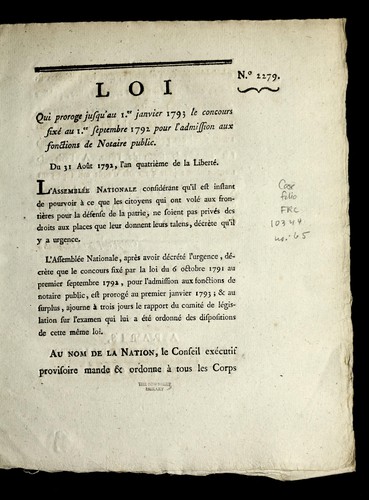 N.º 2279.
LOI
Qui proroge jusqu'au 1.er janvier 1793 le concours
fixé au 1.er septembre 1792 pour l'admission aux
fonctions de Notaire public.
Du 31 Août 1792, l'an quatrième de la Liberté.
L'ASSEMBLÉE NATIONALE considérant qu'il est instant
de pourvoir à ce que les citoyens qui ont volé aux fron-
tières pour la défense de la patrie, ne soient pas privés des
droits aux places que leur donnent leurs talens, décrète qu'il
y a urgence.
L'Assemblée Nationale, après avoir décrété l'urgence, dé-
crète que le concours fixé par la loi du 6 octobre 1791 au
premier septembre 1792, pour l'admission aux fonctions de
notaire public, est prorogé au premier janvier 1793; & au
surplus, ajourne à trois jours le rapport du comité de légis-
lation sur l'examen qui lui a été ordonné des dispositions
de cette même loi.
AU NOM DE LA NATION, le Conseil exécutif
provisoire mande & ordonne à tous les Corps
THE NEWBERRY
LIBRARY
Case
folio
FRC
10344
no. 65